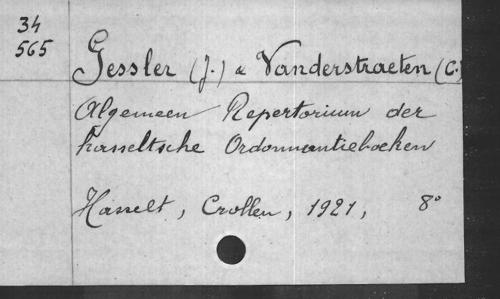 34
565
Gessler (J.) & Vanderstraeten (C.)
Algemeen Repertorium der
hasseltsche Ordonnantieboeken
Hasselt, Crollen, 1921, 8°